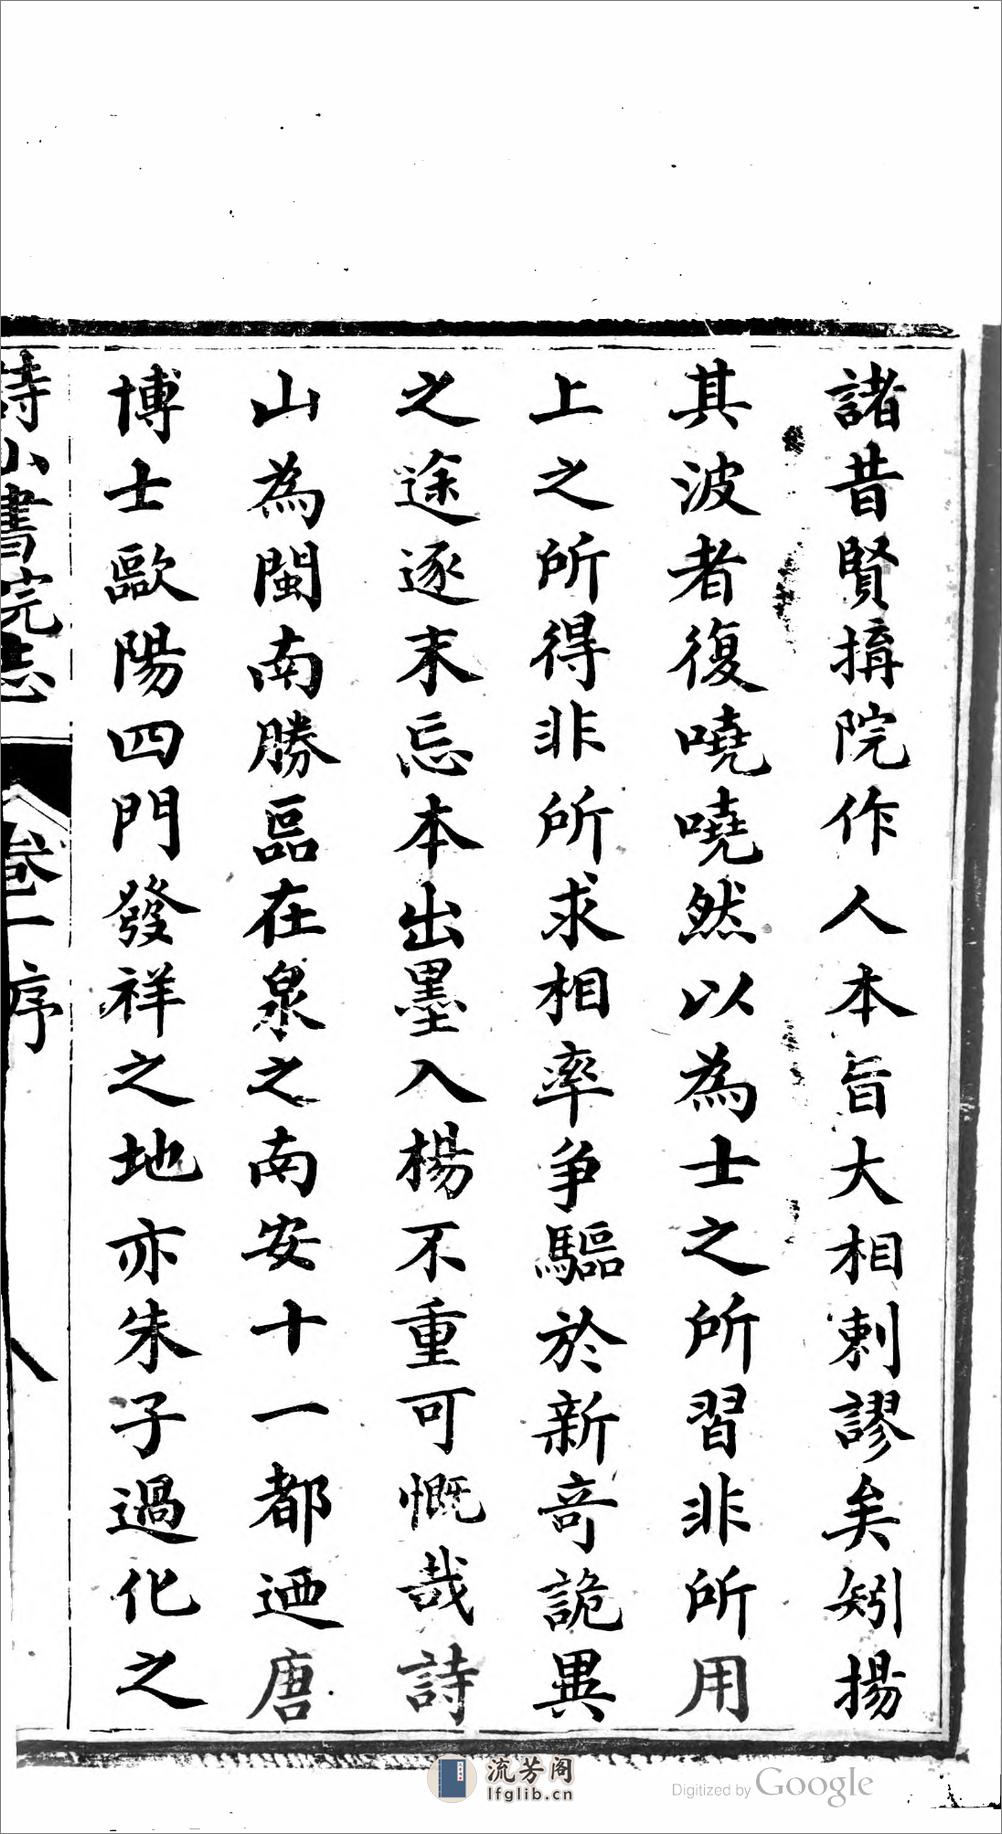 諸昔賢搆院作人本旨大相剌謬矣矧揚
其波者復嘵嘵然以為士之所習非所用
上之所得非所求相率争驅於新竒詭異
之途逐末忘本出墨入楊不重可慨哉詩
山為閩南勝區在泉之南安十一都迺唐
博士歐陽四門發祥之地亦朱子過化之
詩山書院志
卷一 序
流芳阁
lfglib.cn
Digitized by Google